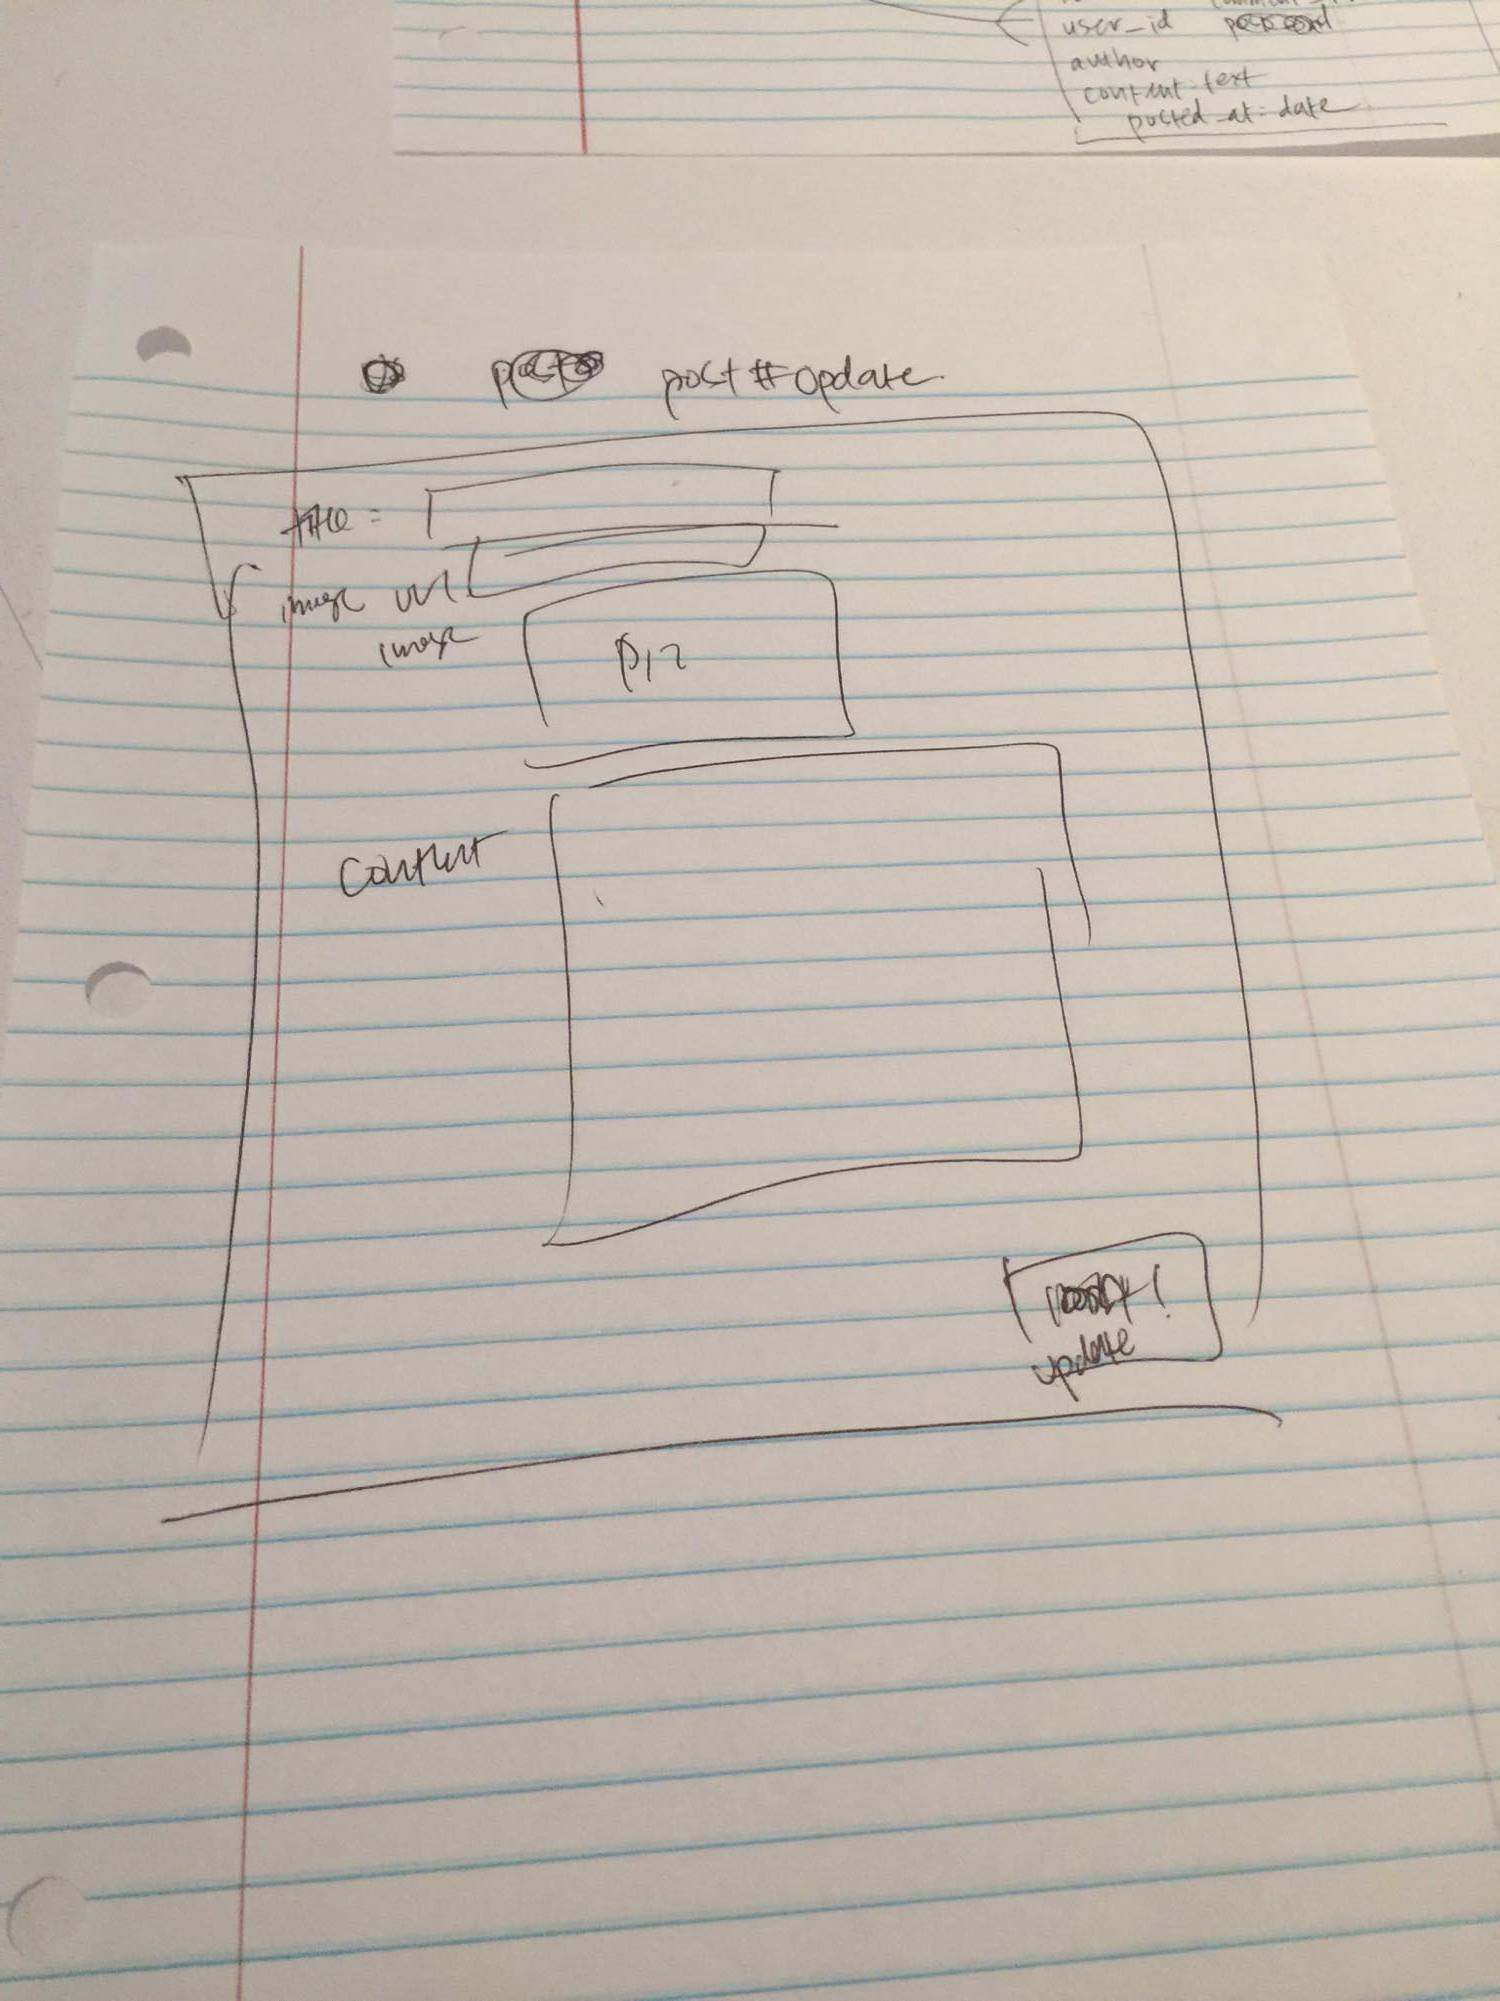 user_id
author
content: text
posted_at: date
post#update
title =
image url
image
pic
content
update